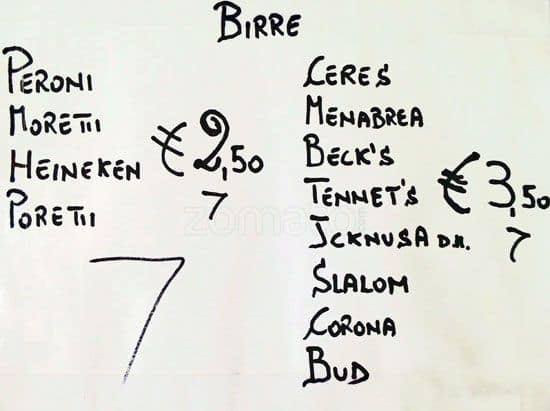 BIRRE
PERONI
MORETTI
HEINEKEN
PORETTI
€ 2,50
7
7
CERES
MENABREA
BECK'S
TENNET'S
ICKNUSA D.N.
SLALOM
CORONA
BUD
€ 3,50
7
zomato